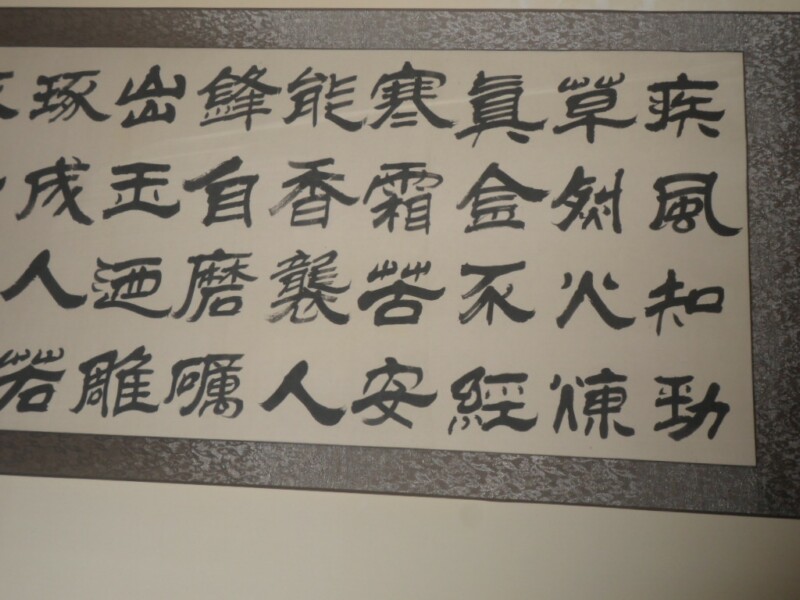 疾風知勁
草烈火煉
眞金不經
寒霜苦安
能香襲人
鋒自磨礪
出玉迺雕
琢成人若